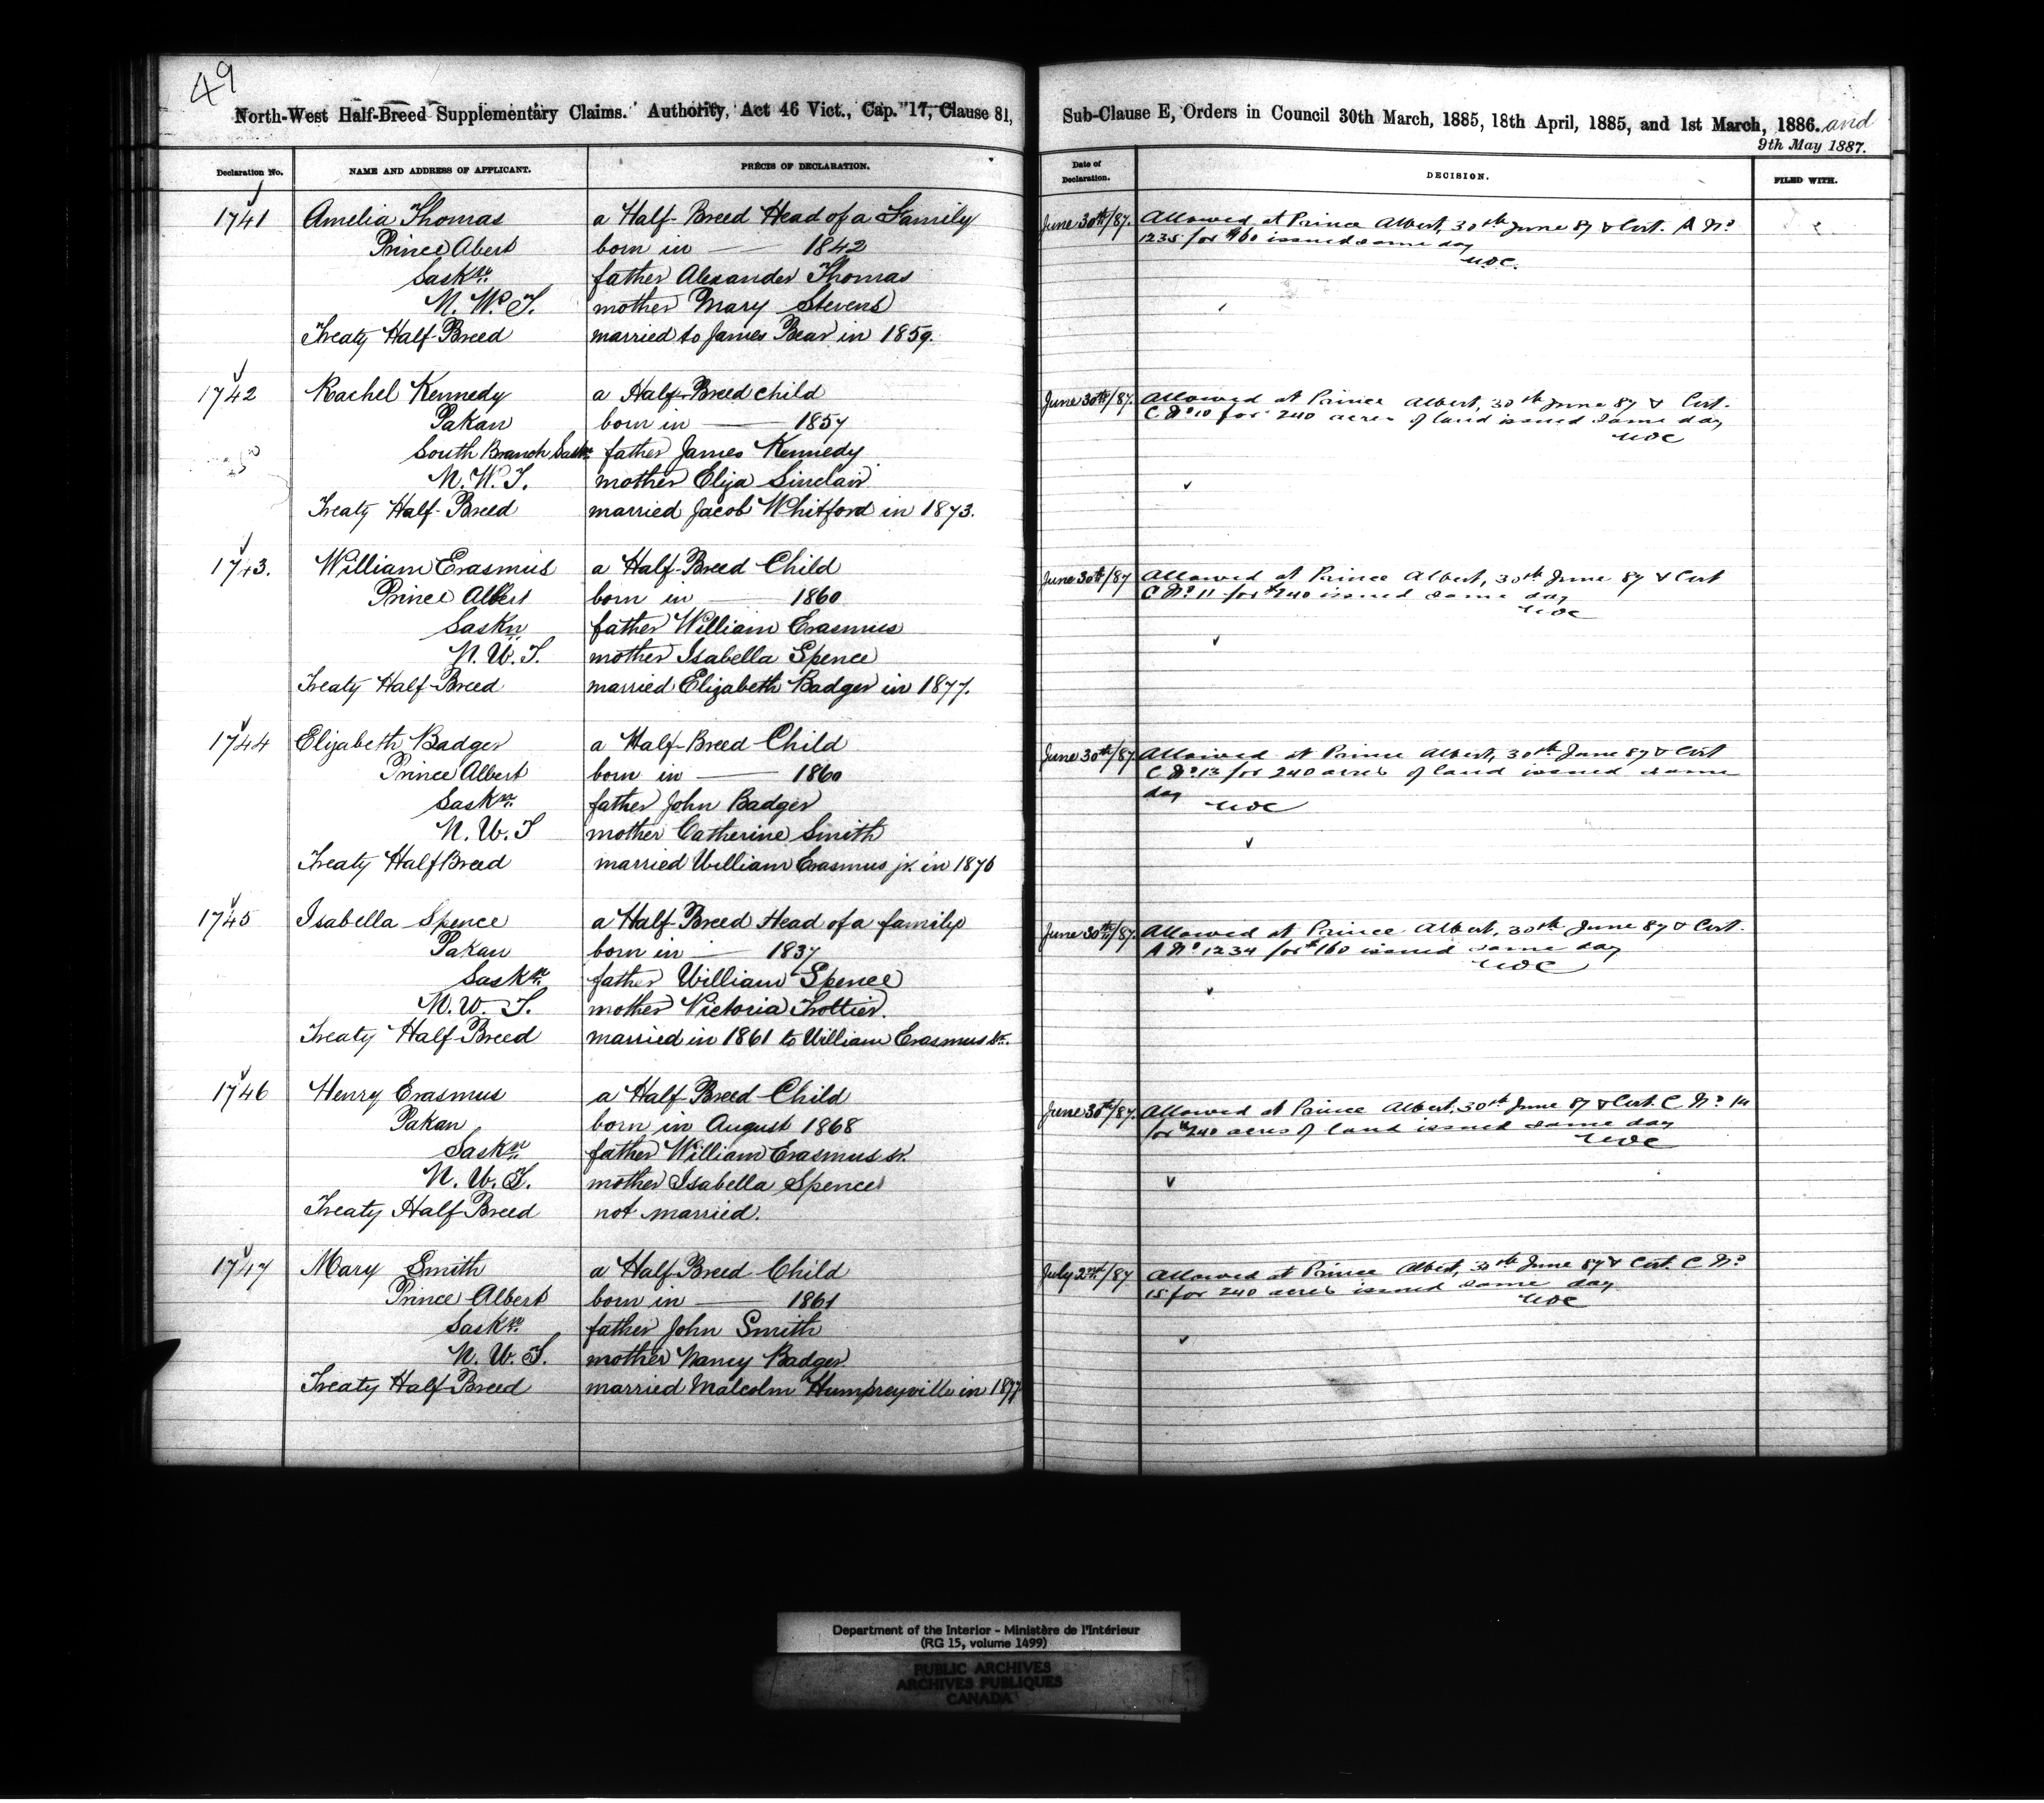 49
North-West Half-Breed Supplementary Claims. Authority, Act 46 Vict., Cap. 17, Clause 81,
Declaration No.
NAME AND ADDRESS OF APPLICANT.
PRÉCIS OF DECLARATION.
1741 Amelia Thomas a Half-Breed Head of a Family
Prince Abert born in — 1842
Saskn. father Alexander Thomas
N. W. T. mother Mary Stevens
Treaty Half-Breed married to James Bear in 1859.
1742 Rachel Kennedy a Half-Breed child
Pakan born in — 1857
South Branch Saskn. father James Kennedy
N. W. T. mother Eliza Sinclair
Treaty Half-Breed married Jacob Whitford in 1873.
1743. William Erasmus a Half-Breed Child
Prince Albert born in — 1860
Saskn father William Erasmus
N. W. T. mother Isabella Spence
Treaty Half-Breed married Elizabeth Badger in 1877.
1744 Elizabeth Badger a Half-Breed Child
Prince Albert born in — 1860
Saskn. father John Badger
N. W. T mother Catherine Smith
Treaty Half Breed married William Erasmus jr. in 1876
1745 Isabella Spence a Half-Breed Head of a family
Pakan born in — 1837
Saskn. father William Spence
N. W. T. mother Victoria Trottier.
Treaty Half-Breed married in 1861 to William Erasmus Sr.
1746 Henry Erasmus a Half-Breed Child
Pakan born in August 1868
Saskn father William Erasmus sr.
N. W. T. mother Isabella Spence
Treaty Half Breed not married.
1747 Mary Smith a Half-Breed Child
Prince Albert born in — 1861
Saskn. father John Smith
N. W. T. mother Nancy Badger
Treaty Half-Breed married Malcolm Humpreyville in 1877
Sub-Clause E, Orders in Council 30th March, 1885, 18th April, 1885, and 1st March, 1886. and
9th May 1887.
Date of Declaration.
DECISION.
FILED WITH.
June 30th/87. Allowed at Prince Albert, 30th June 87 & Cert. A No.
1235 for $160 issued same day
June 30th/87. Allowed at Prince Albert, 30th June 87 & Cert.
C No. 10 for 240 acres of land issued same day
June 30th/87 Allowed at Prince Albert, 30th June 87 & Cert
C No. 11 for $240 issued same day
June 30th/87 Allowed at Prince Albert, 30th June 87 & Cert
C No. 13 for 240 acres of land issued same
day
June 30th/87. Allowed at Prince Albert, 30th June 87 & Cert.
A No. 1234 for $160 issued same day
June 30th/87. Allowed at Prince Albert. 30th June 87 & Cert. C No. 14
for 240 acres of land issued same day
July 2nd/87 Allowed at Prince Albert, 30th June 87 & Cert. C No.
15 for 240 acres issued same day
Department of the Interior - Ministère de l'Intérieur
(RG 15, volume 1499)
PUBLIC ARCHIVES
ARCHIVES PUBLIQUES
CANADA